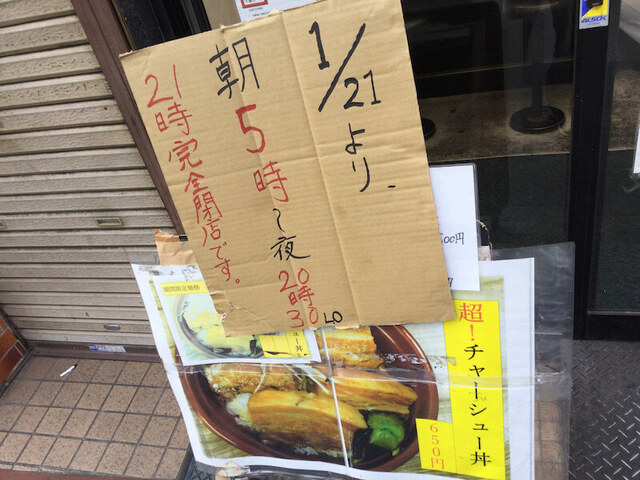 1/21より、
朝5時~夜20時30LO
21時完全閉店です。
500円
円
期間限定価格
ー丼
超!チャーシュー丼
650円
ALSOK